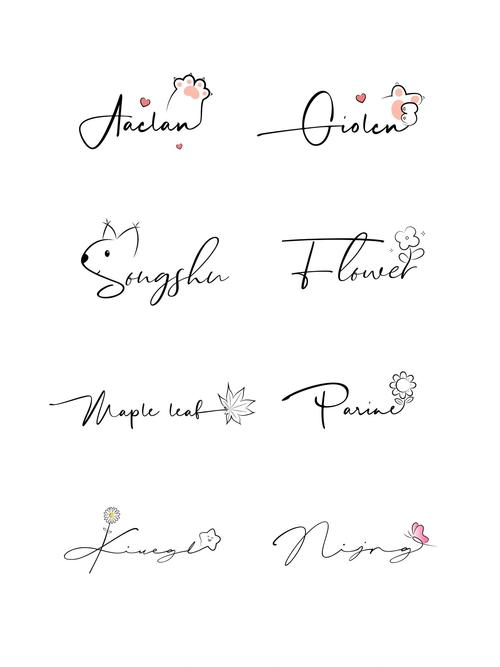 Aaelan
Giolen
Songshu
Flower
Maple leaf
Parine
Kiuegl
Nijng